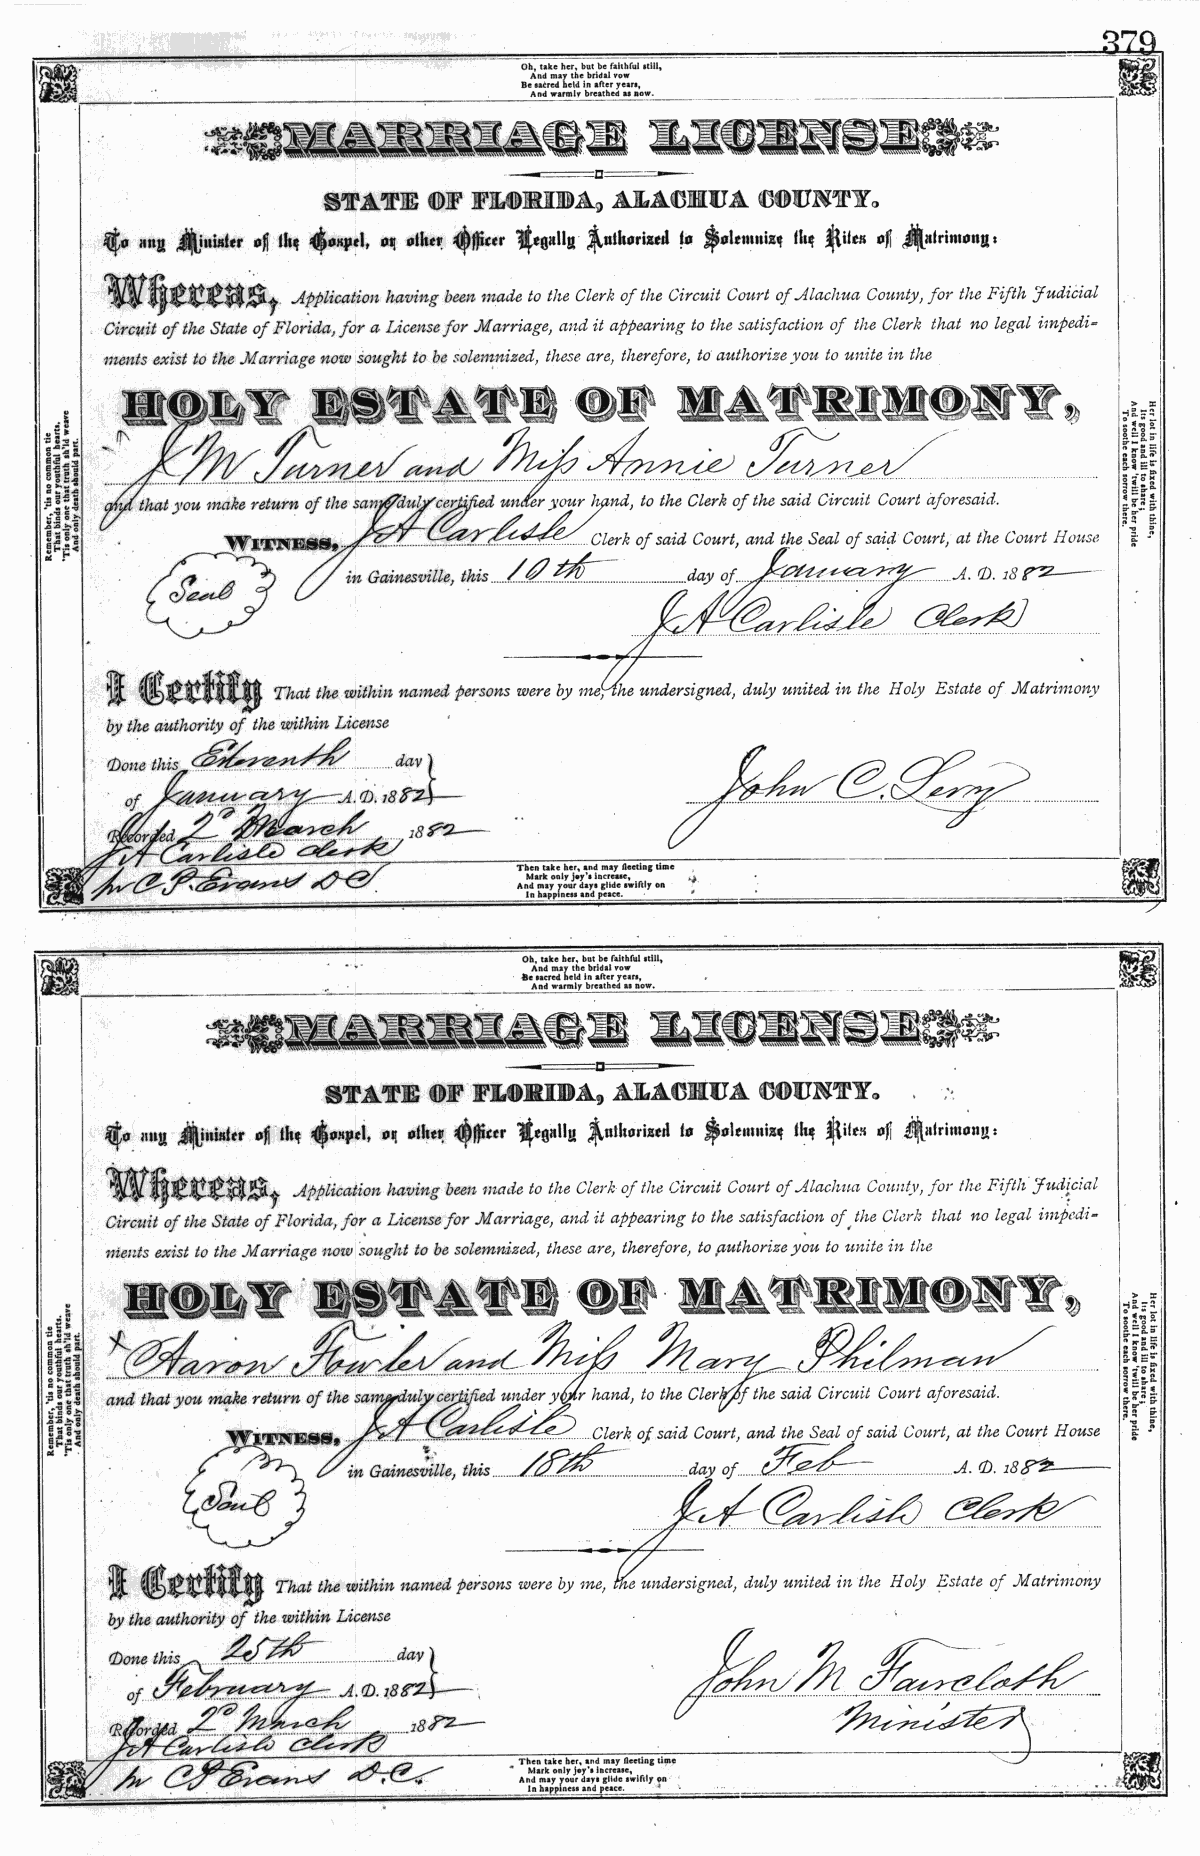 379
Oh, take her, but be faithful still,
And may the bridal vow
Be sacred held in after years,
And warmly breathed as now.
MARRIAGE LICENSE
STATE OF FLORIDA, ALACHUA COUNTY.
To any Minister of the Gospel, or other Officer Legally Authorized to Solemnize the Rites of Matrimony:
Whereas, Application having been made to the Clerk of the Circuit Court of Alachua County, for the Fifth Judicial
Circuit of the State of Florida, for a License for Marriage, and it appearing to the satisfaction of the Clerk that no legal impedi-
ments exist to the Marriage now sought to be solemnized, these are, therefore, to authorize you to unite in the
HOLY ESTATE OF MATRIMONY,
J M Turner and Miss Annie Turner
and that you make return of the same duly certified under your hand, to the Clerk of the said Circuit Court aforesaid.
WITNESS, J A Carlisle Clerk of said Court, and the Seal of said Court, at the Court House
in Gainesville, this 10th day of January A. D. 1882
Seal
J A Carlisle Clerk
I Certify That the within named persons were by me, the undersigned, duly united in the Holy Estate of Matrimony
by the authority of the within License
Done this Eleventh day
of January A. D. 1882
John C. Leroy
Recorded 2d March 1882
J A Carlisle Clerk
C. P. Evans D C
Then take her, and may fleeting time
Mark only joy's increase,
And may your days glide swiftly on
In happiness and peace.
Remember, 'tis no common tie
That binds our youthful hearts,
'Tis only one that truth sh'ld weave
And only death should part.
Her lot in life is fixed with thine,
Its good and ill to share;
And well I know 'twill be her pride
To soothe each sorrow there.
Oh, take her, but be faithful still,
And may the bridal vow
Be sacred held in after years,
And warmly breathed as now.
MARRIAGE LICENSE
STATE OF FLORIDA, ALACHUA COUNTY.
To any Minister of the Gospel, or other Officer Legally Authorized to Solemnize the Rites of Matrimony:
Whereas, Application having been made to the Clerk of the Circuit Court of Alachua County, for the Fifth Judicial
Circuit of the State of Florida, for a License for Marriage, and it appearing to the satisfaction of the Clerk that no legal impedi-
ments exist to the Marriage now sought to be solemnized, these are, therefore, to authorize you to unite in the
HOLY ESTATE OF MATRIMONY,
x Aaron Fowler and Miss Mary Philman
and that you make return of the same duly certified under your hand, to the Clerk of the said Circuit Court aforesaid.
WITNESS, J A Carlisle Clerk of said Court, and the Seal of said Court, at the Court House
in Gainesville, this 18th day of Feb A. D. 1882
Seal
J A Carlisle Clerk
I Certify That the within named persons were by me, the undersigned, duly united in the Holy Estate of Matrimony
by the authority of the within License
Done this 25th day
of February A. D. 1882
John M Faircloth
Minister
Recorded 2d March 1882
J A Carlisle Clerk
C P Evans D. C.
Then take her, and may fleeting time
Mark only joy's increase,
And may your days glide swiftly on
In happiness and peace.
Remember, 'tis no common tie
That binds our youthful hearts,
'Tis only one that truth sh'ld weave
And only death should part.
Her lot in life is fixed with thine,
Its good and ill to share;
And well I know 'twill be her pride
To soothe each sorrow there.